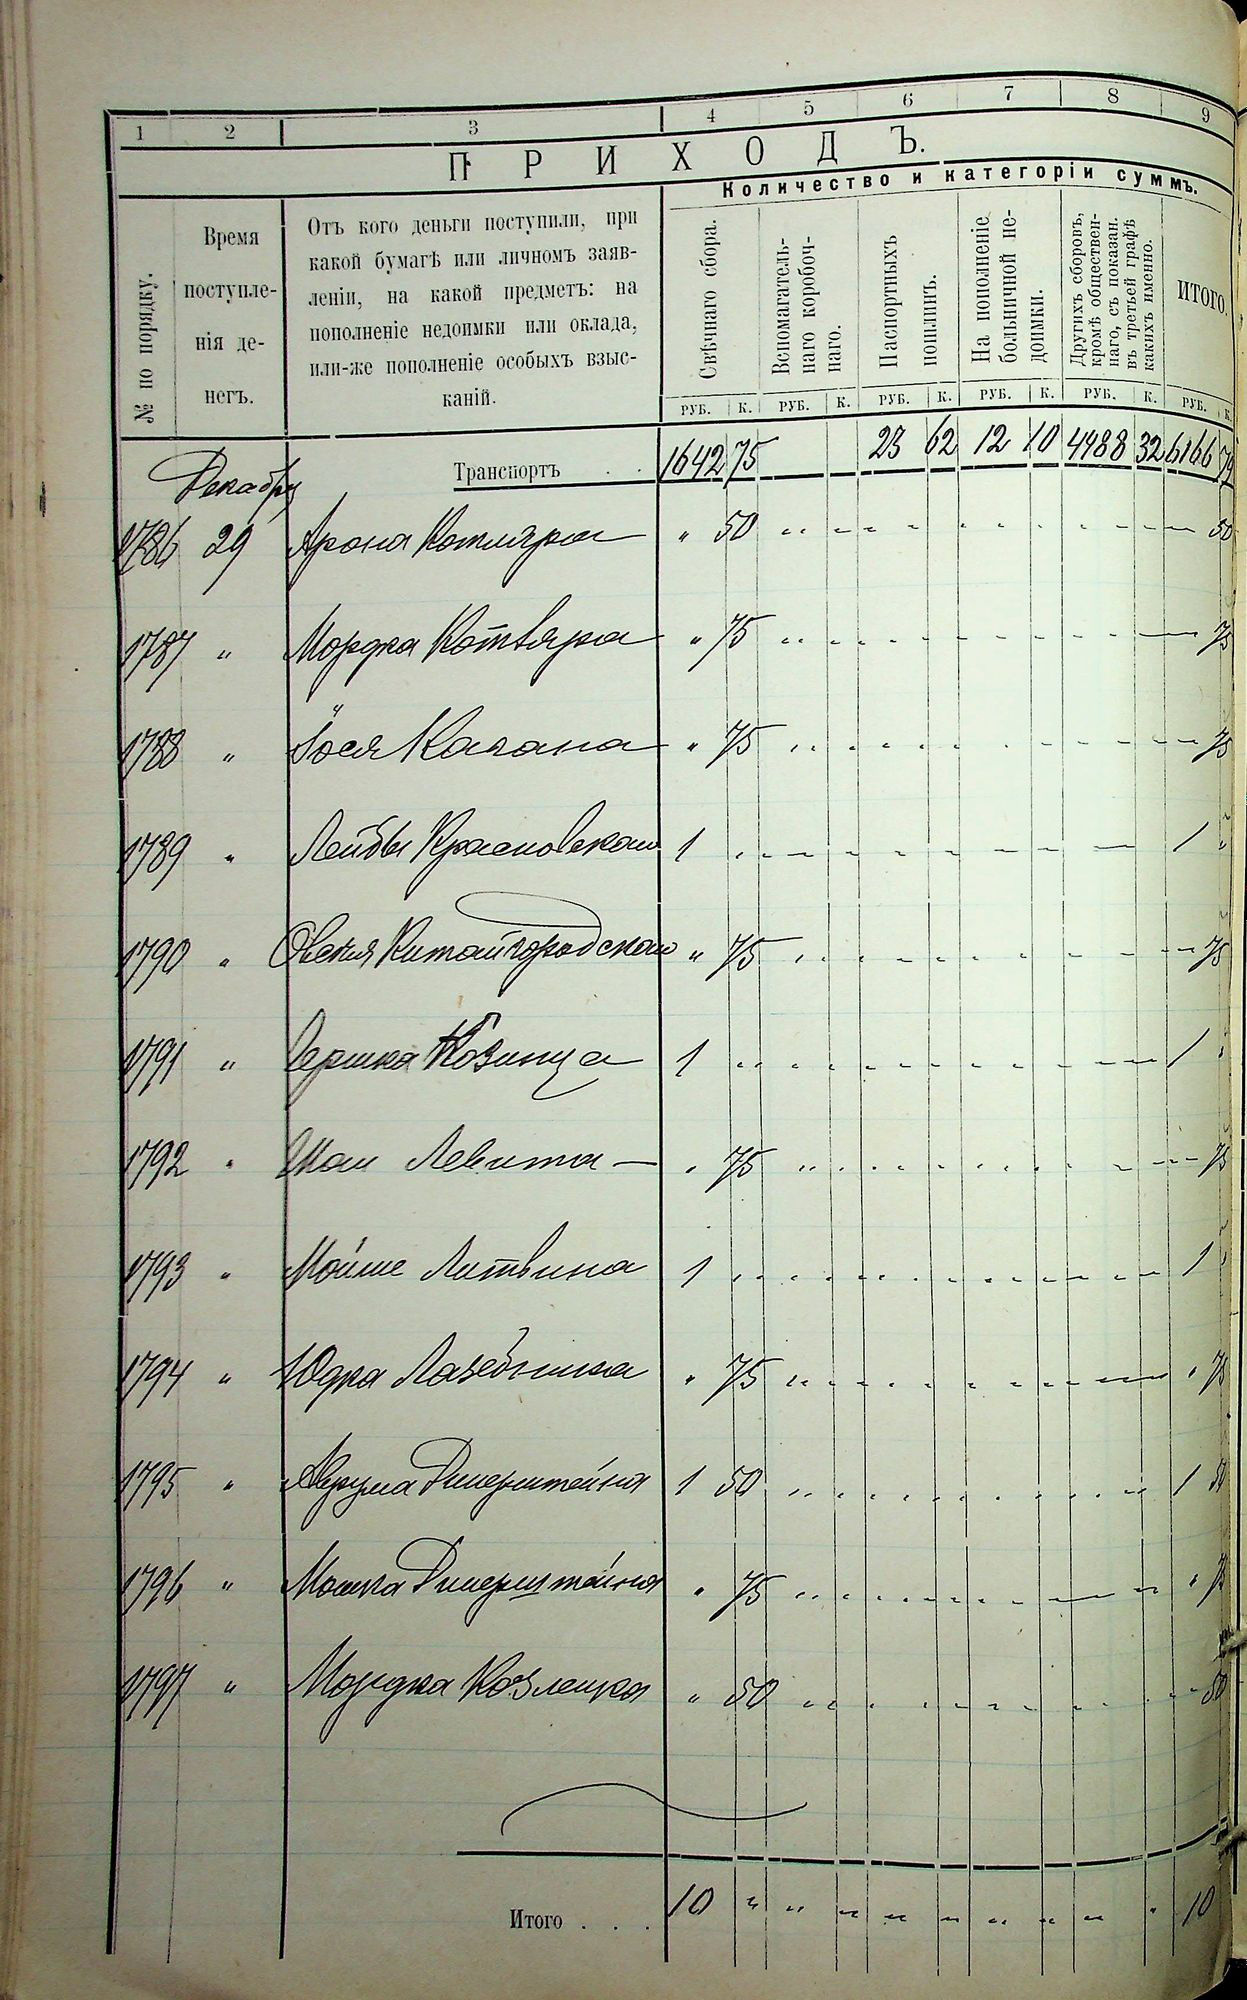 1 2 3 4 5 6 7 8 9
ПРИХОДЪ.
Количество и категоріи суммъ.
№ по порядку.
Время
поступле-
нія де-
негъ.
Отъ кого деньги поступили, при
какой бумагѣ или личномъ заяв-
леніи, на какой предметъ: на
пополненіе недоимки или оклада,
или-же пополненіе особыхъ взыс-
каній.
Свѣчнаго сбора.
Вспомагатель-
наго коробоч-
наго.
Паспортныхъ
пошлинъ.
На пополненіе
больничной не-
доимки.
Другихъ сборовъ,
кромѣ обществен-
наго, съ показан.
въ третьей графѣ
какихъ именно.
ИТОГО.
РУБ. К. РУБ. К. РУБ. К. РУБ. К. РУБ. К. РУБ. К.
Транспортъ . . 1642 75 23 62 12 10 4488 32 6166 79
Декабрь
1786 29 Арона Котляра " 50 50
1787 " Мордка Котляра " 75 75
1788 " Іося Кагана " 75 75
1789 " Лейбы Красновскаго 1 1 "
1790 " Овсея Китайгородскаго " 75 75
1791 " Гершка Козинца 1 1 "
1792 " Шаи Левита — " 75 75
1793 " Мойше Литвина 1 1 "
1794 " Юдка Лазебника " 75 " 75
1795 " Аврума Динерштейна 1 50 1 50
1796 " Мошка Динерштейна " 75 " 75
1797 " Мордка " 50 50
Итого . . . 10 " 10